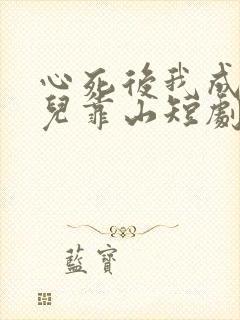 心死後我成
兒靠山短劇
藍寶